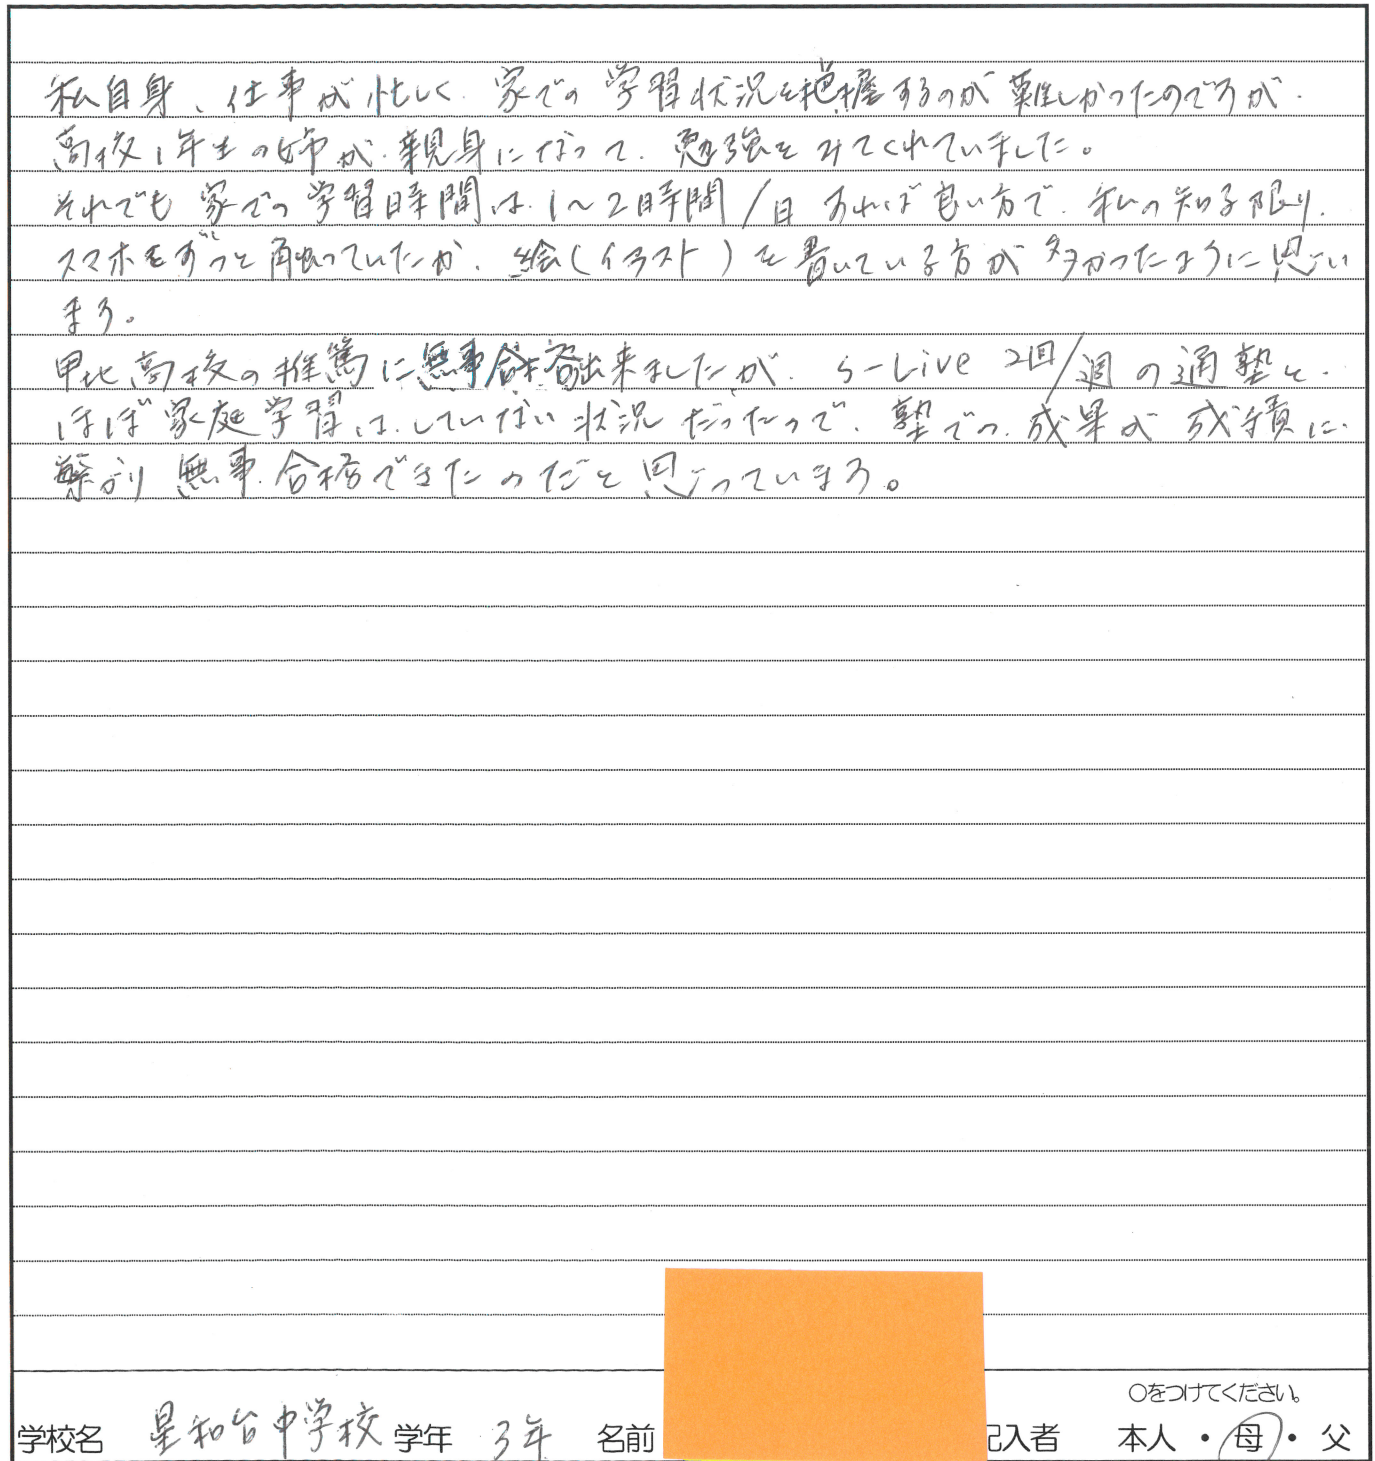 私自身、仕事が忙しく、家での学習状況を把握するのが難しかったのですが、
高校1年生の姉が、親身になって、勉強をみてくれていました。
それでも家での学習時間は、1〜2時間/日あれば良い方で、私の知る限り、
スマホをずっと触っていたか、絵(イラスト)を書いている方が多かったように思い
ます。
甲北高校の推薦に無事合格出来ましたが、s-Live 2回/週の通塾と、
ほぼ家庭学習は、していない状況だったので、塾での、成果が成績に、
繋がり無事、合格できたのだと思っています。
○をつけてください。
学校名 星和台中学校 学年 3年 名前 記入者 本人・母・父